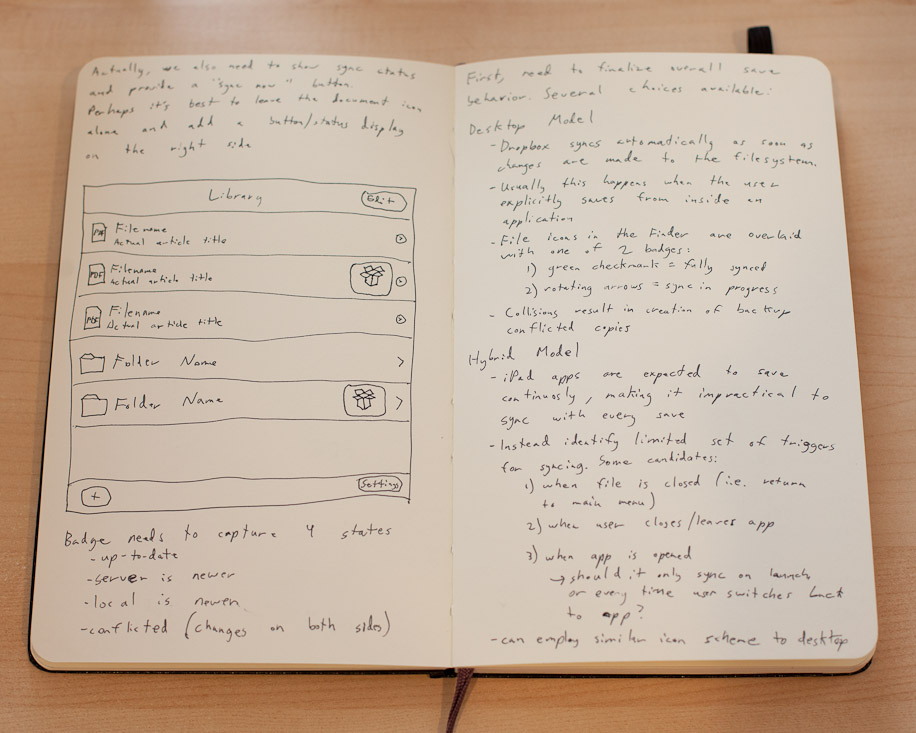 Actually, we also need to show sync status
and provide a "sync now" button.
Perhaps it's best to leave the document icon
alone and add a button/status display
on the right side
Library
Edit
PDF
Filename
Actual article title
PDF
Filename
Actual article title
PDF
Filename
Actual article title
Folder Name
Folder Name
+
Settings
Badge needs to capture 4 states
- up-to-date
- server is newer
- local is newer
- conflicted (changes on both sides)
First, need to finalize overall save
behavior. Several choices available:
Desktop Model
- Dropbox syncs automatically as soon as
changes are made to the filesystem.
- Usually this happens when the user
explicitly saves from inside an
application
- File icons in the Finder are overlaid
with one of 2 badges:
1) green checkmark = fully synced
2) rotating arrows = sync in progress
- Collisions result in creation of backup
conflicted copies
Hybrid Model
- iPad apps are expected to save
continuosly, making it impractical to
sync with every save
- Instead identify limited set of triggers
for syncing. Some candidates:
1) when file is closed (i.e. return
to main menu)
2) when user closes/leaves app
3) when app is opened
→ should it only sync on launch
or every time user switches back
to app?
- can employ similar icon scheme to desktop